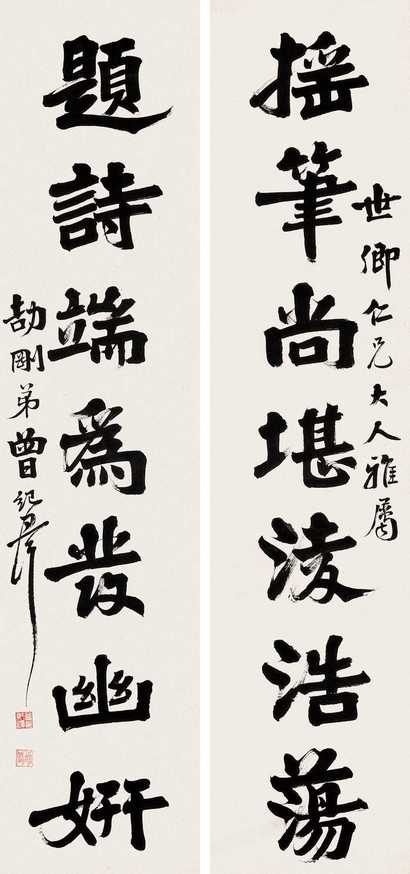 世卿仁兄大人雅屬
搖筆尚堪淩浩蕩
題詩端為發幽妍
劼剛弟曾紀澤